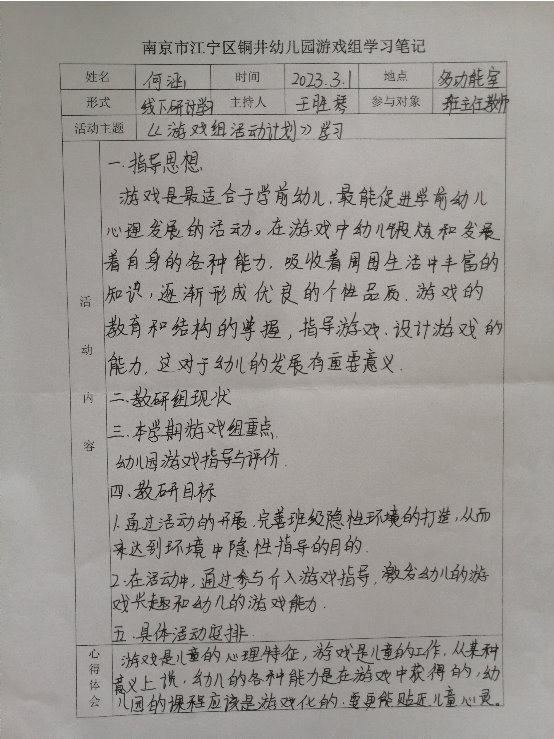 南京市江宁区铜井幼儿园游戏组学习笔记
姓名 何 时间 2023.3.1 地点 多功能室
形式 线下研讨学习 主持人 王胜琴 参与对象 班主任教师
活动主题 《游戏组活动计划》学习
活动内容
一.指导思想
游戏是最适合于学前幼儿,最能促进学前幼儿
心理发展的活动。在游戏中幼儿锻炼和发展
着自身的各种能力,吸收着周围生活中丰富的
知识,逐渐形成优良的个性品质.游戏的
教育和结构的掌握,指导游戏.设计游戏的
能力,这对于幼儿的发展有重要意义.
二.教研组现状
三.本学期游戏组重点.
幼儿园游戏指导与评价.
四.教研目标
1.通过活动的开展.完善班级隐性环境的打造,从而
来达到环境中隐性指导的目的.
2.在活动中,通过参与介入游戏指导,激发幼儿的游
戏兴趣和幼儿的游戏能力.
五.具体活动安排.
心得体会
游戏是儿童的心理特征,游戏是儿童的工作,从某种
意义上说,幼儿的各种能力是在游戏中获得的,幼
儿园的课程应该是游戏化的.要更能贴近儿童心灵。